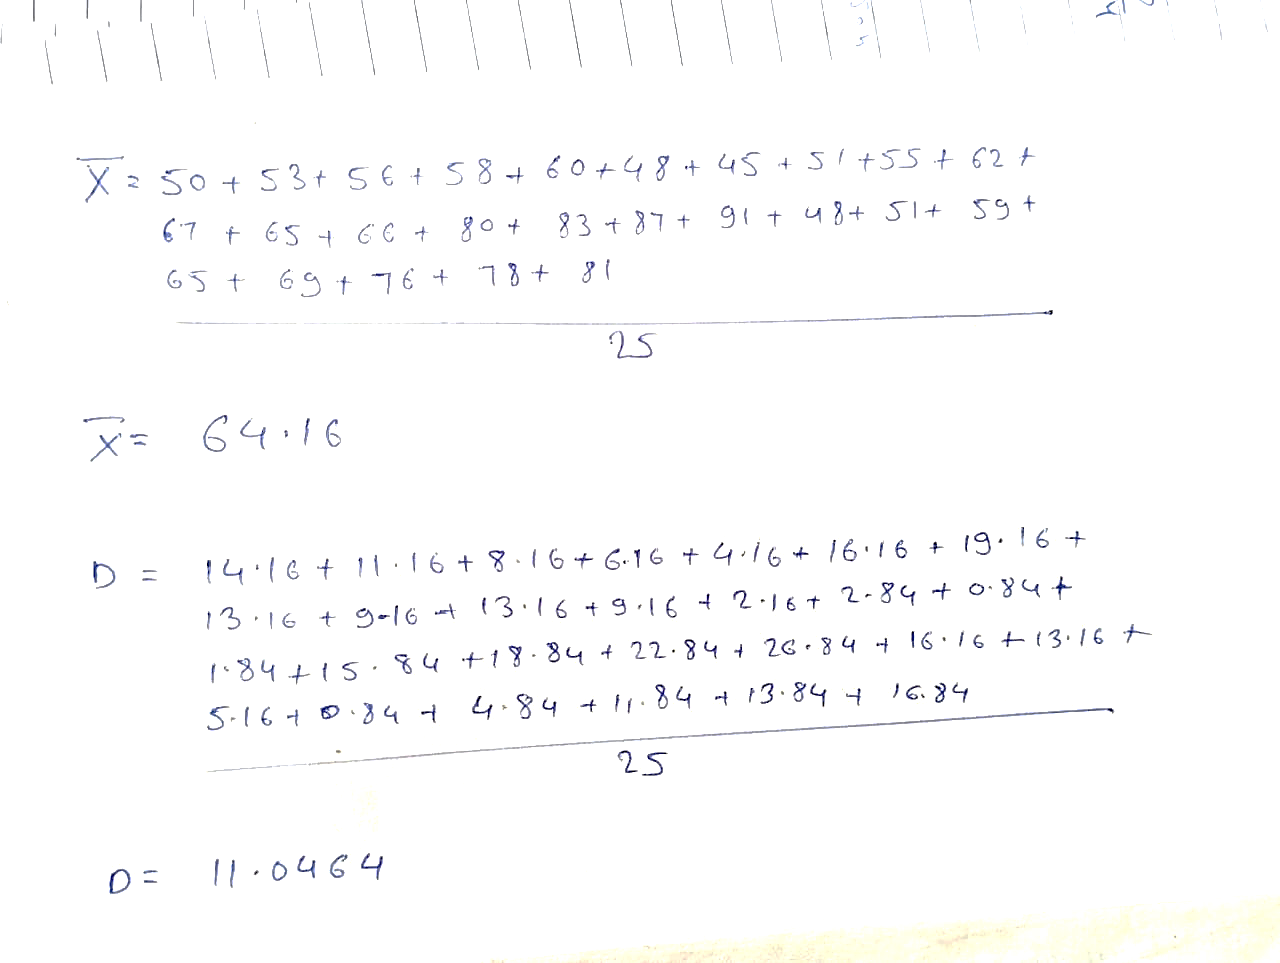 X̄ = 50 + 53 + 56 + 58 + 60 + 48 + 45 + 51 + 55 + 62 +
67 + 65 + 66 + 80 + 83 + 87 + 91 + 48 + 51 + 59 +
65 + 69 + 76 + 78 + 81
25
X̄ = 64.16
D = 14.16 + 11.16 + 8.16 + 6.16 + 4.16 + 16.16 + 19.16 +
13.16 + 9.16 + 13.16 + 9.16 + 2.16 + 2.84 + 0.84 +
1.84 + 15.84 + 18.84 + 22.84 + 26.84 + 16.16 + 13.16 +
5.16 + 0.84 + 4.84 + 11.84 + 13.84 + 16.84
25
D = 11.0464